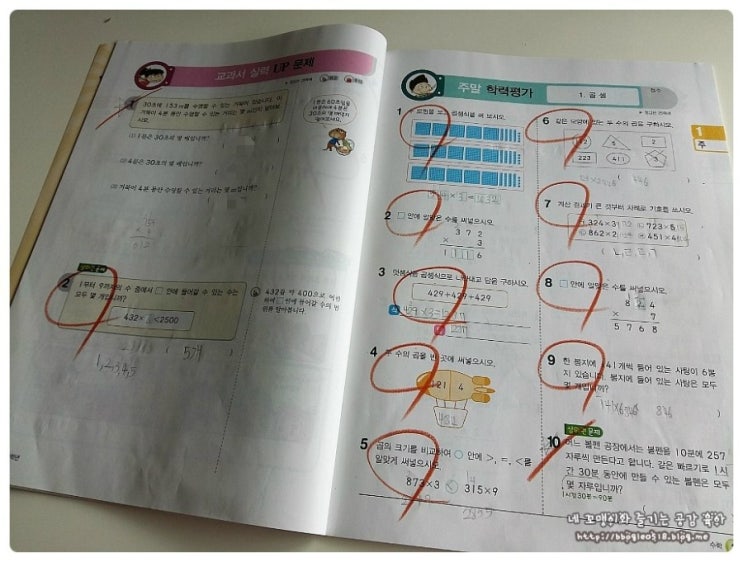 교과서 실력 UP 문제
30초에 153 m를 수영할 수 있는 거북이 있습니다. 이
거북이 4분 동안 수영할 수 있는 거리는 몇 m인지 알아보
시오.
(1) 1분은 30초의 몇 배입니까?
(2) 4분은 30초의 몇 배입니까?
(3) 거북이 4분 동안 수영할 수 있는 거리는 몇 m입니까?
2 1부터 9까지의 수 중에서 □ 안에 들어갈 수 있는 수는
모두 몇 개입니까?
432× <2500
( 5개 )
1,2,3,4,5
432를 약 400으로 어림
하여 □ 안에 들어갈 수의 범
위를 알아봅니다.
주말 학력평가
1. 곱셈
점수
1 모형을 보고 곱셈식을 써 보시오.
2 □ 안에 알맞은 수를 써넣으시오.
3 7 2
× 3
3 덧셈식을 곱셈식으로 나타내고 답을 구하시오.
429+429+429
식 429×3=1287
답 1287
4 두 수의 곱을 빈 곳에 써넣으시오.
121 4
484
5 곱의 크기를 비교하여 ○ 안에 >, =, <를
알맞게 써넣으시오.
873×3 < 315×9
2835
6 같은 모양에 있는 두 수의 곱을 구하시오.
223 411 3
7 계산 결과가 큰 것부터 차례로 기호를 쓰시오.
324×3 723×5
862×2 451×4
8 □ 안에 알맞은 수를 써넣으시오.
8 2 4
× 7
5 7 6 8
9 한 봉지에 141개씩 들어 있는 사탕이 6봉
지 있습니다. 봉지에 들어 있는 사탕은 모두
몇 개입니까?
141×6=846 846
10 어느 볼펜 공장에서는 볼펜을 10분에 257
자루씩 만든다고 합니다. 같은 빠르기로 1시
간 30분 동안에 만들 수 있는 볼펜은 모두
몇 자루입니까?
1시간30분=90분
1
주
수학
네 꼬맹이와 즐기는 공감 육아
http://bbogleo518.blog.me